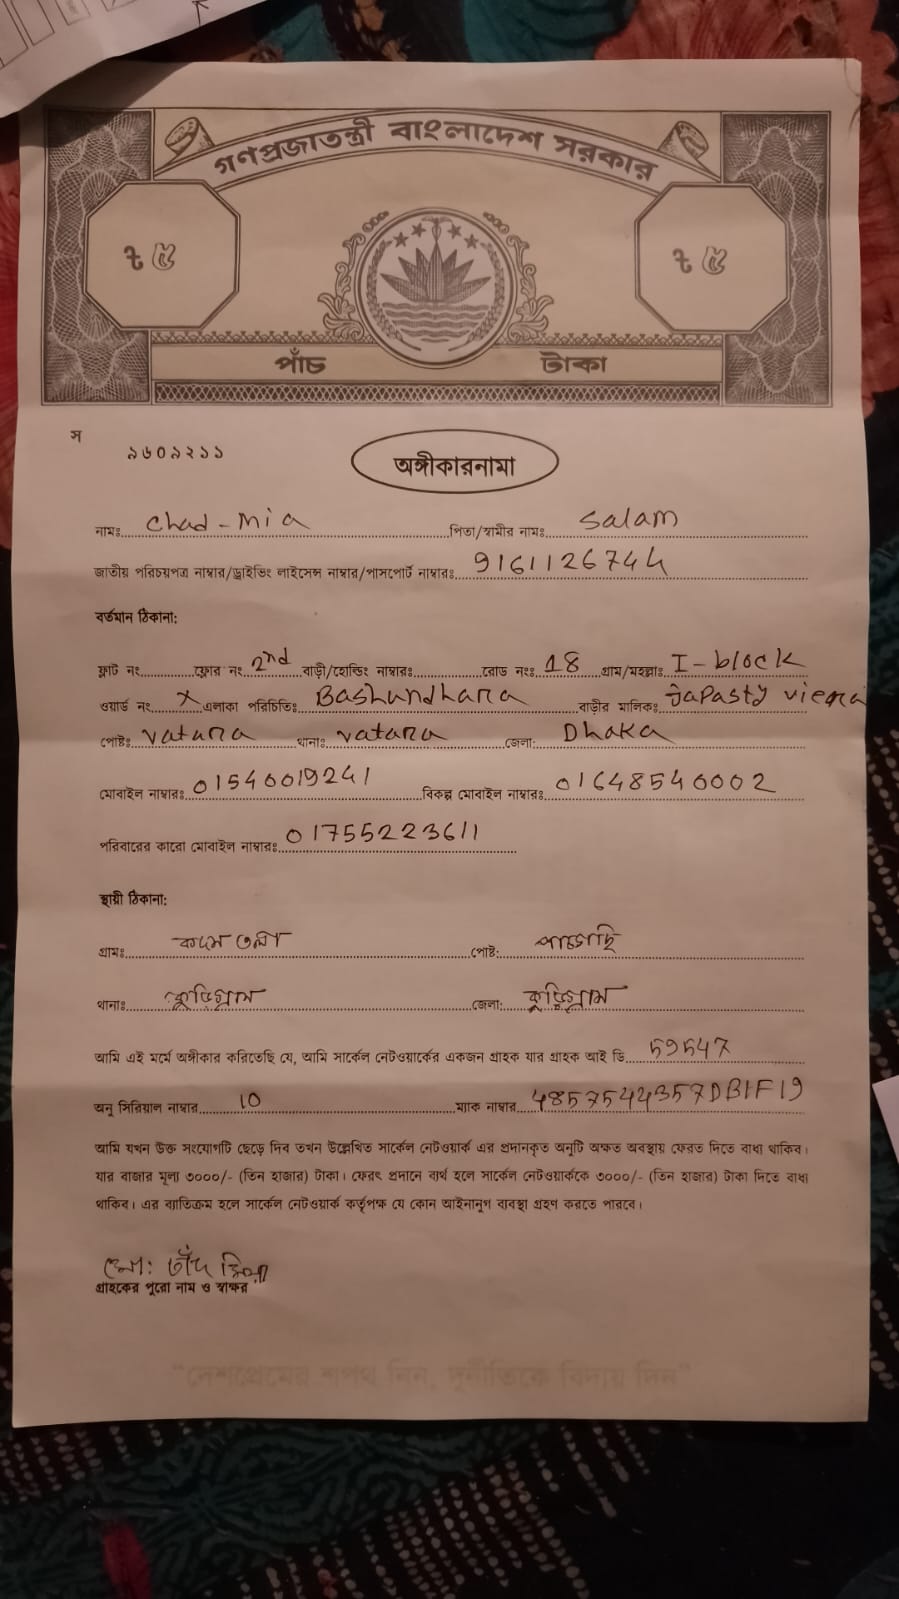 গণপ্রজাতন্ত্রী বাংলাদেশ সরকার
ট ৫ ট ৫
পাঁচ টাকা
স
৯৬০৯২১১
অঙ্গীকারনামা
নামঃ chad-mia পিতা/স্বামীর নামঃ salam
জাতীয় পরিচয়পত্র নাম্বার/ড্রাইভিং লাইসেন্স নাম্বার/পাসপোর্ট নাম্বারঃ 9161126744
বর্তমান ঠিকানা:
ফ্লাট নং ফ্লোর নং 2nd বাড়ী/হোল্ডিং নাম্বারঃ রোড নংঃ 18 গ্রাম/মহল্লাঃ I-block
ওয়ার্ড নং X এলাকা পরিচিতিঃ Bashundhara বাড়ীর মালিকঃ
পোষ্টঃ vatara থানাঃ vatara জেলা: Dhaka
মোবাইল নাম্বারঃ 01540019241 বিকল্প মোবাইল নাম্বারঃ 01648540002
পরিবারের কারো মোবাইল নাম্বারঃ 01755223611
স্থায়ী ঠিকানা:
গ্রামঃ কদমতলা পোষ্ট: পাচগাছি
থানাঃ কুড়িগ্রাম জেলা: কুড়িগ্রাম
আমি এই মর্মে অঙ্গীকার করিতেছি যে, আমি সার্কেল নেটওয়ার্কের একজন গ্রাহক যার গ্রাহক আই ডি 59547
অনু সিরিয়াল নাম্বার 10 ম্যাক নাম্বার 48575444357DB1F19
আমি যখন উক্ত সংযোগটি ছেড়ে দিব তখন উল্লেখিত সার্কেল নেটওয়ার্ক এর প্রদানকৃত অনুটি অক্ষত অবস্থায় ফেরত দিতে বাধ্য থাকিব।
যার বাজার মূল্য ৩০০০/- (তিন হাজার) টাকা। ফেরৎ প্রদানে ব্যর্থ হলে সার্কেল নেটওয়ার্ককে ৩০০০/- (তিন হাজার) টাকা দিতে বাধ্য
থাকিব। এর ব্যতিক্রম হলে সার্কেল নেটওয়ার্ক কর্তৃপক্ষ যে কোন আইনানুগ ব্যবস্থা গ্রহণ করতে পারবে।
মো: চাঁদ মিয়া
গ্রাহকের পুরো নাম ও স্বাক্ষর
“দেশপ্রেমের শপথ নিন, দুর্নীতিকে বিদায় দিন”